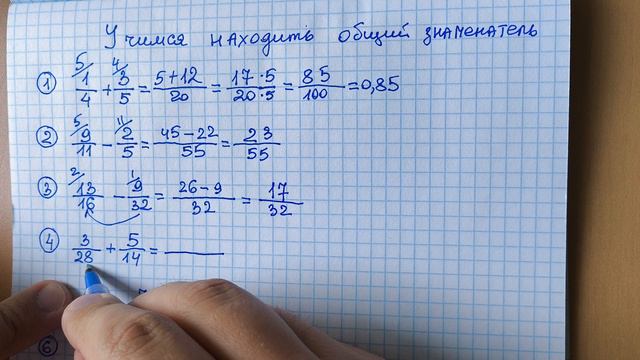 Учимся находить общий знаменатель
① 5/ 1/4 + 4/ 3/5 = 5+12/20 = 17·5/20·5 = 85/100 = 0,85
② 5/ 9/11 - 11/ 2/5 = 45-22/55 = 23/55
③ 2/ 13/16 - 1/ 9/32 = 26-9/32 = 17/32
④ 3/28 + 5/14 =
⑥